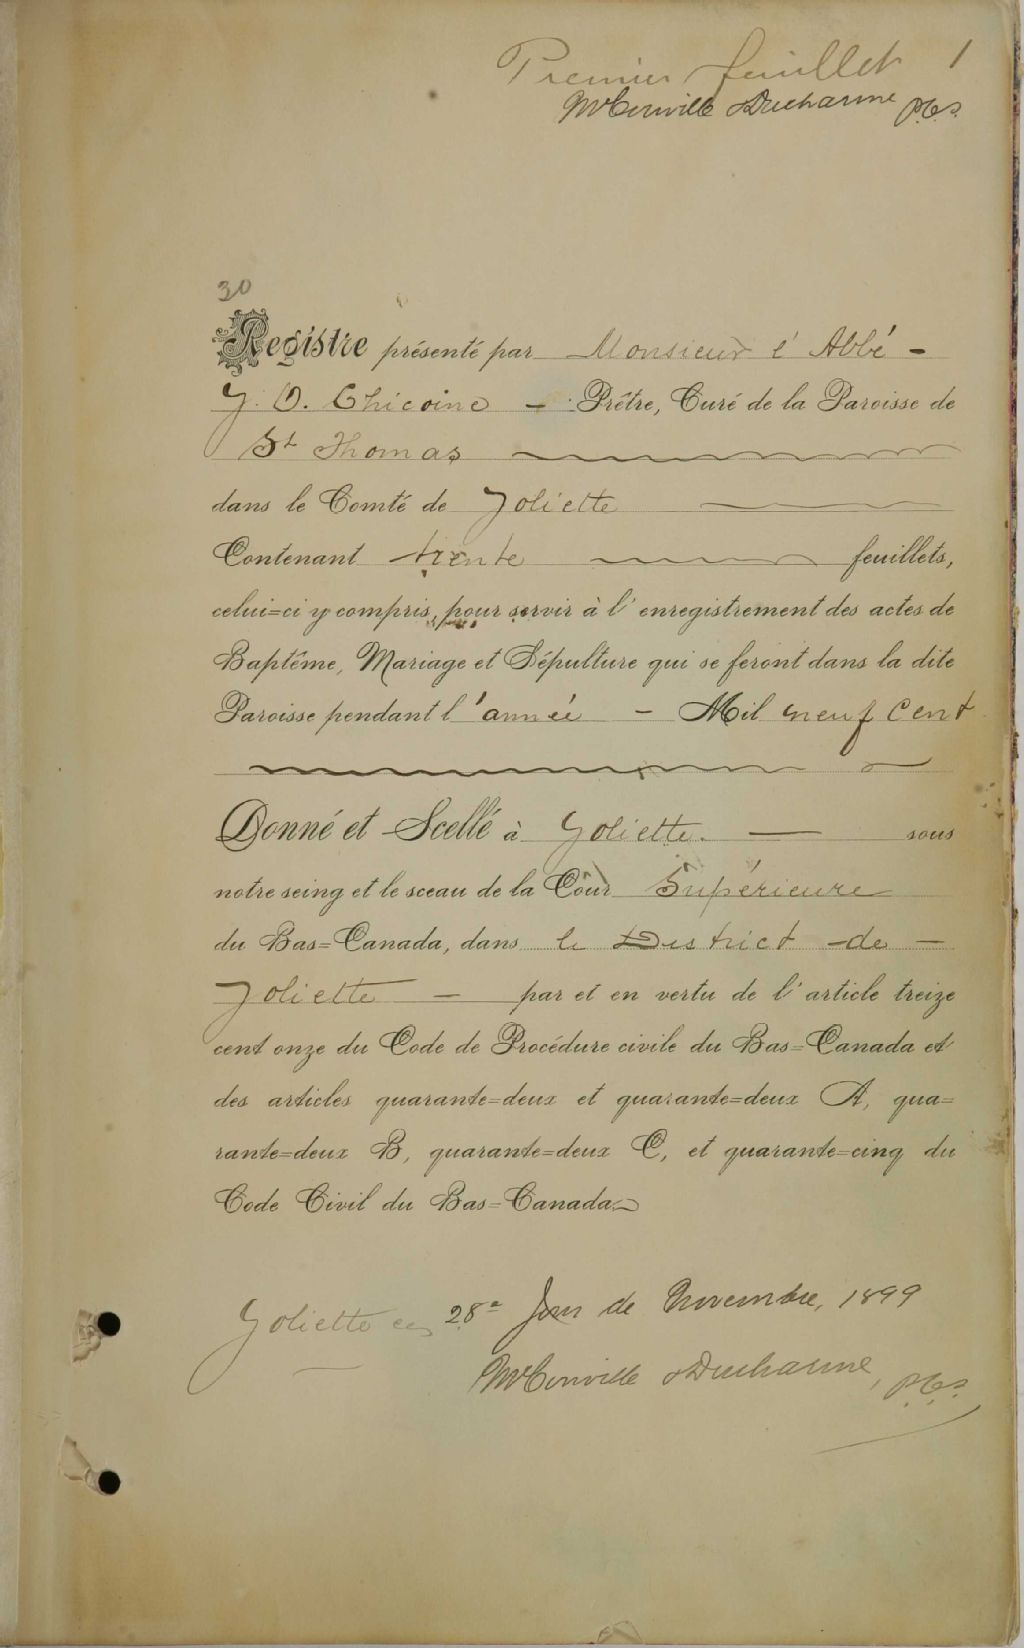 Premier feuillet 1
McConville & Ducharme P.C.S.
30
Registre présenté par Monsieur l'Abbé -
J. O. Chicoine - Prêtre, Curé de la Paroisse de
St Thomas
dans le Comté de Joliette
Contenant trente feuillets,
celui=ci y compris, pour servir à l'enregistrement des actes de
Baptême, Mariage et Sépulture qui se feront dans la dite
Paroisse pendant l'année - Mil neuf cent
Donné et Scellé à Joliette. — sous
notre seing et le sceau de la Cour Supérieure
du Bas=Canada, dans le District de —
Joliette — par et en vertu de l'article treize
cent onze du Code de Procédure civile du Bas=Canada et
des articles quarante=deux et quarante=deux A, qua=
rante=deux B, quarante=deux C, et quarante=cinq du
Code Civil du Bas=Canada.
Joliette ce 28e Jour de Novembre, 1899
McConville & Ducharme, P.C.S.